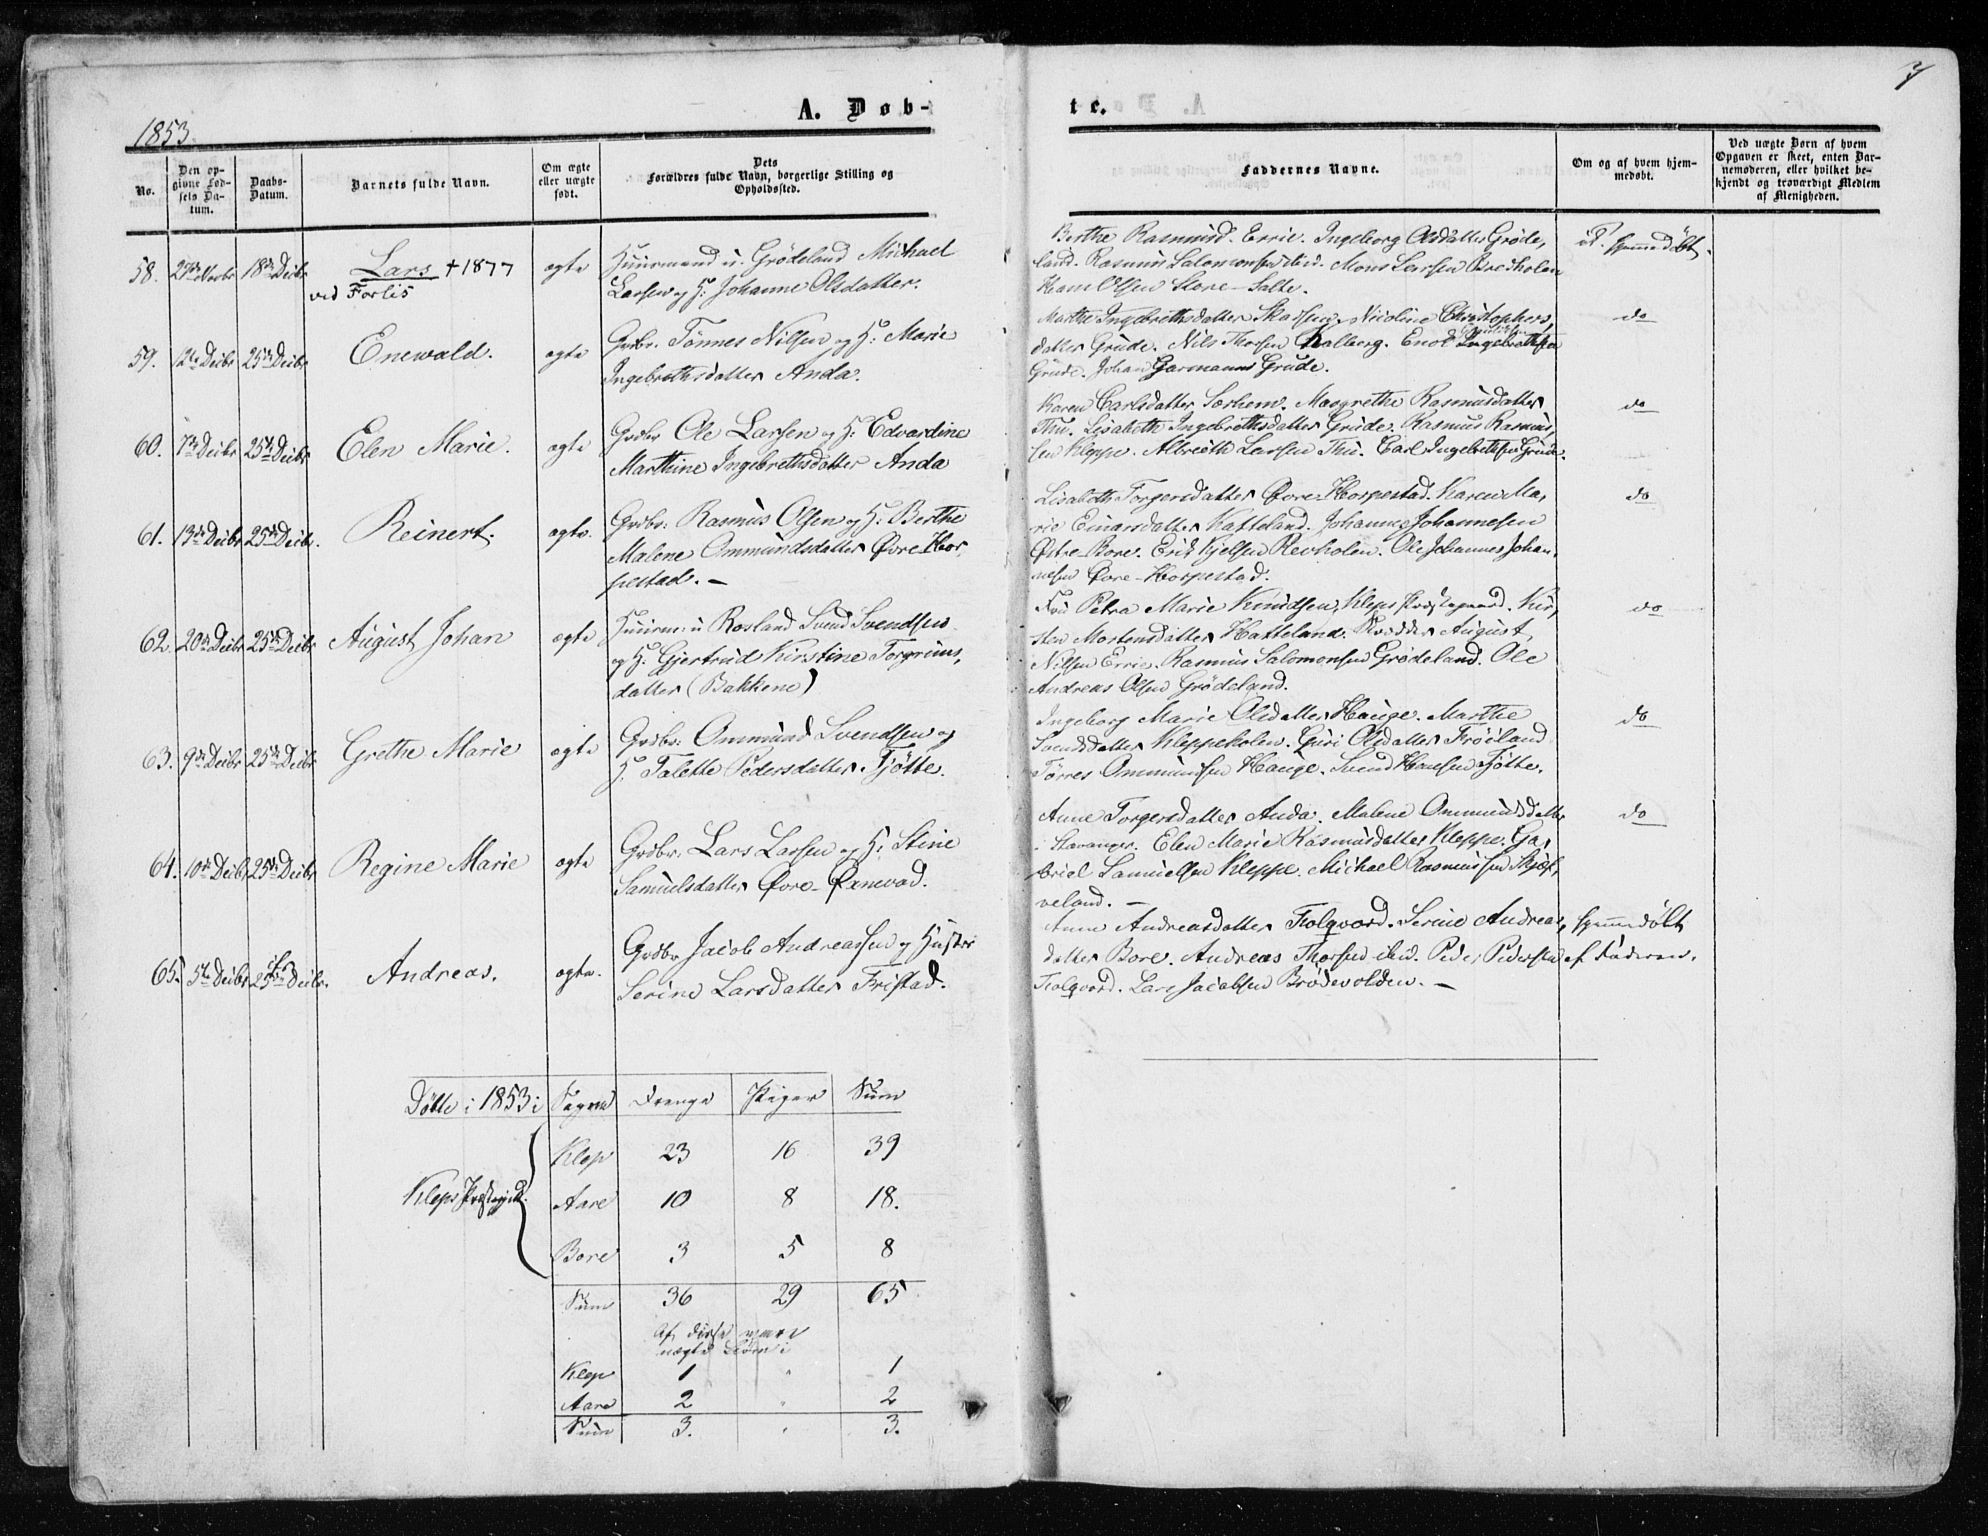 1853.
A. Døb-
te.
7
No.
Den op-
givne Fød-
sels Da-
tum.
Daabs-
Datum.
Barnets fulde Navn.
Om ægte
eller uægte
født.
Dets
Forældres fulde Navn, borgerlige Stilling og
Opholdssted.
Faddernes Navne.
Om og af hvem hjem-
medøbt.
Ved uægte Børn af hvem
Opgaven er skeet, enten Bar-
nemoderen, eller hvilket be-
kjendt og troværdigt Medlem
af Menigheden.
58. 18de Decbr Lars † 1877 ægte
ved Forlis
Huusmand u. Grödeland Michael
Larsen og H: Johanne Olsdatter.
Berthe Rasmusd. Errie. Ingeborg Olsdatter Gröde,
land. Rasmus Salomonsen ibid. Mons Larsen
Hans Olsen Store-Salte.
hjemmedöbt.
59. 12te Decbr 25de Decbr Enewald. ægte
Grdbr. Tönnes Nilsen og H: Marie
Ingebrethsdatter Anda.
Marthe Ingebrethsdatter Nicoline Christophers,
datter Grude. Nils Thorsen Enok Ingebrethsen
Grude. Johan Garmann Grude.
do
60. 7de Decbr 25de Decbr Elen Marie. ægte
Grdbr Ole Larsen og H: Edvardine
Marthine Ingebrethsdatter Anda
Karen Carlsdatter Sørhem. Margrethe Rasmusdatter
Thu. Lisabeth Ingebrethsdatter Grude. Rasmus Rasmus,
sen Kleppe. Albreth Larsen Thu. Carl Ingebrethsen Grude.
do
61. 13de Decbr 25de Decbr. Reinert. ægte.
Grdbr: Rasmus Olsen og H: Berthe
Malene Ommundsdatter Øvre-Hor,
pestad. —
Lisabeth Torgersdatter Øvre-Horpestad. Karen Ma,
rie Einarsdatter Hatteland. Johannes Johannesen
Østre-Bore. Erik Kjelsen Revholen. Ole Johannes Johan,
nesen Øvre-Horpestad.
do
62. 20de Decbr 25de Decbr August Johan ægte
Huusm: u Rosland Svend Svendsen
og H: Gjertrud Kirstine Torgrims,
datter (Bakkene)
Fru Petra Marie Knudsen, Kleps Præstegaard. Kir,
sten Mortensdatter Hatteland. August
Nilsen Errie. Rasmus Salomonsen Grödeland. Ole
Andreas Olsen Grödeland.
do
63. 9de Decbr 25de Decbr Grethe Marie ægte
Grdbr: Ommund Svendsen og
H: Talette Pedersdatter Tjötte.
Ingeborg Marie Olsdatter Hauge. Marthe
Svendsdatter Kleppeholen. Guri Olsdatter Fröiland
Törres Ommundsen Hauge. Svend Hansen Tjötte.
do
64. 10de Decbr 25de Decbr Regine Marie ægte
Grdbr: Lars Larsen og H: Stine
Samuelsdatter Øvre-Øxnevad.
Anne Torgersdatter Anda. Malene Ommundsdatter
i Stavanger. Elen Marie Rasmusdatter Kleppe. Ga,
briel Samuelsen Kleppe. Michael Rasmussen Skjæf,
veland. —
do
65. 5te Decbr 25de Decbr. Andreas. ægte.
Grdbr Jacob Andreassen og Hustru
Serine Larsdatter Fristad.
Anne Andreasdatter Folqvord. Serine Andreas,
datter Bore. Andreas Thorsen ibid. Peder Pedersen
Folqvord. Lars Jacobsen Brödevolden. —
hjemmedöbt
af Faderen.
Döbte i 1853 i Sogne Drenge Piger Sum
Klep 23 16 39
Kleps Præstegjeld. Aare 10 8 18.
Bore 3 5 8
Sum 36 29 65
Af disse vare
uægte Börn i
Klep 1 " 1
Aare 2 " 2
Sum 3. " 3.